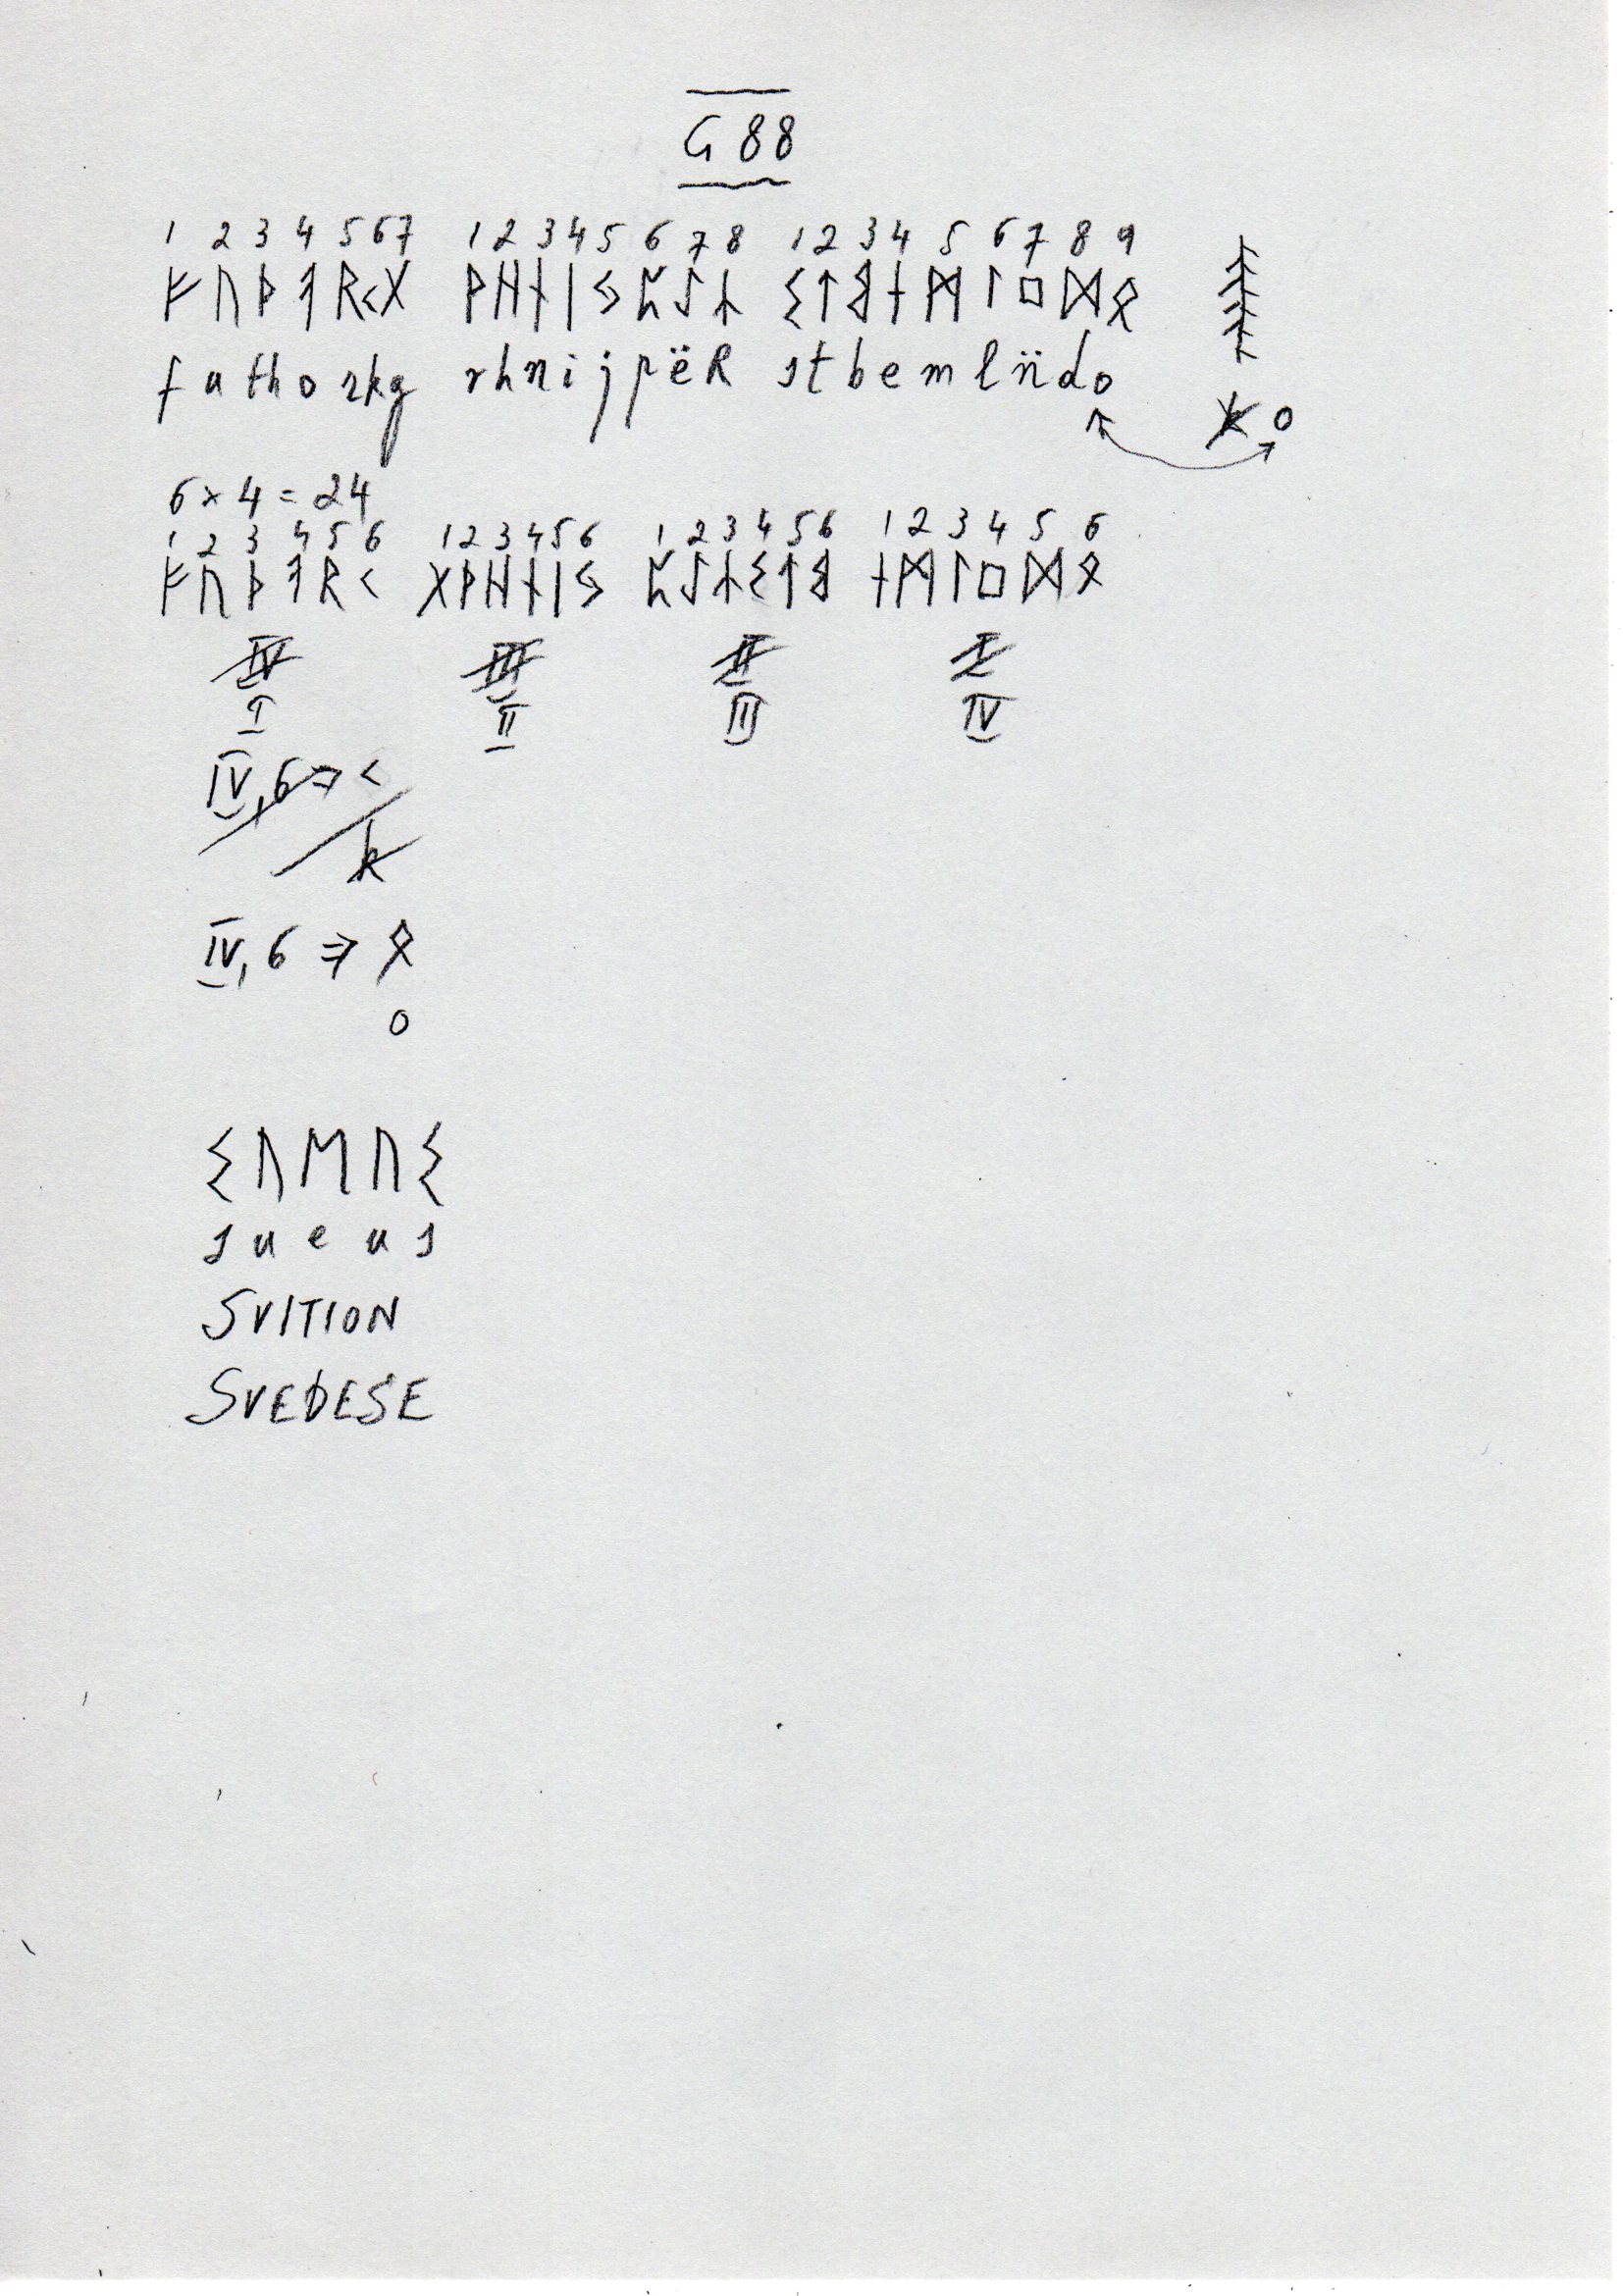 G 88
1 2 3 4 5 6 7 1 2 3 4 5 6 7 8 1 2 3 4 5 6 7 8 9
ᚠ ᚢ ᚦ ᚨ ᚱ ᚲ ᚷ ᚹ ᚺ ᚾ ᛁ ᛃ ᛈ ᛇ ᛣ ᛊ ᛏ ᛒ ᚾ ᛗ ᛚ ᛜ ᛞ ᛟ
f u th o r k g r h n i j p ë R s t b e m l n̈ d o
k o
6 x 4 = 24
1 2 3 4 5 6 1 2 3 4 5 6 1 2 3 4 5 6 1 2 3 4 5 6
ᚠ ᚢ ᚦ ᚨ ᚱ ᚲ ᚷ ᚹ ᚺ ᚾ ᛁ ᛃ ᛈ ᛇ ᛣ ᛊ ᛏ ᛒ ᚾ ᛗ ᛚ ᛜ ᛞ ᛟ
IV III II I
I II III IV
IV, 6 ⇒ ᚲ
k
IV, 6 ⇒ ᛟ
o
ᛊ ᚢ ᛖ ᚢ ᛊ
s u e u s
SVITION
SVEDESE